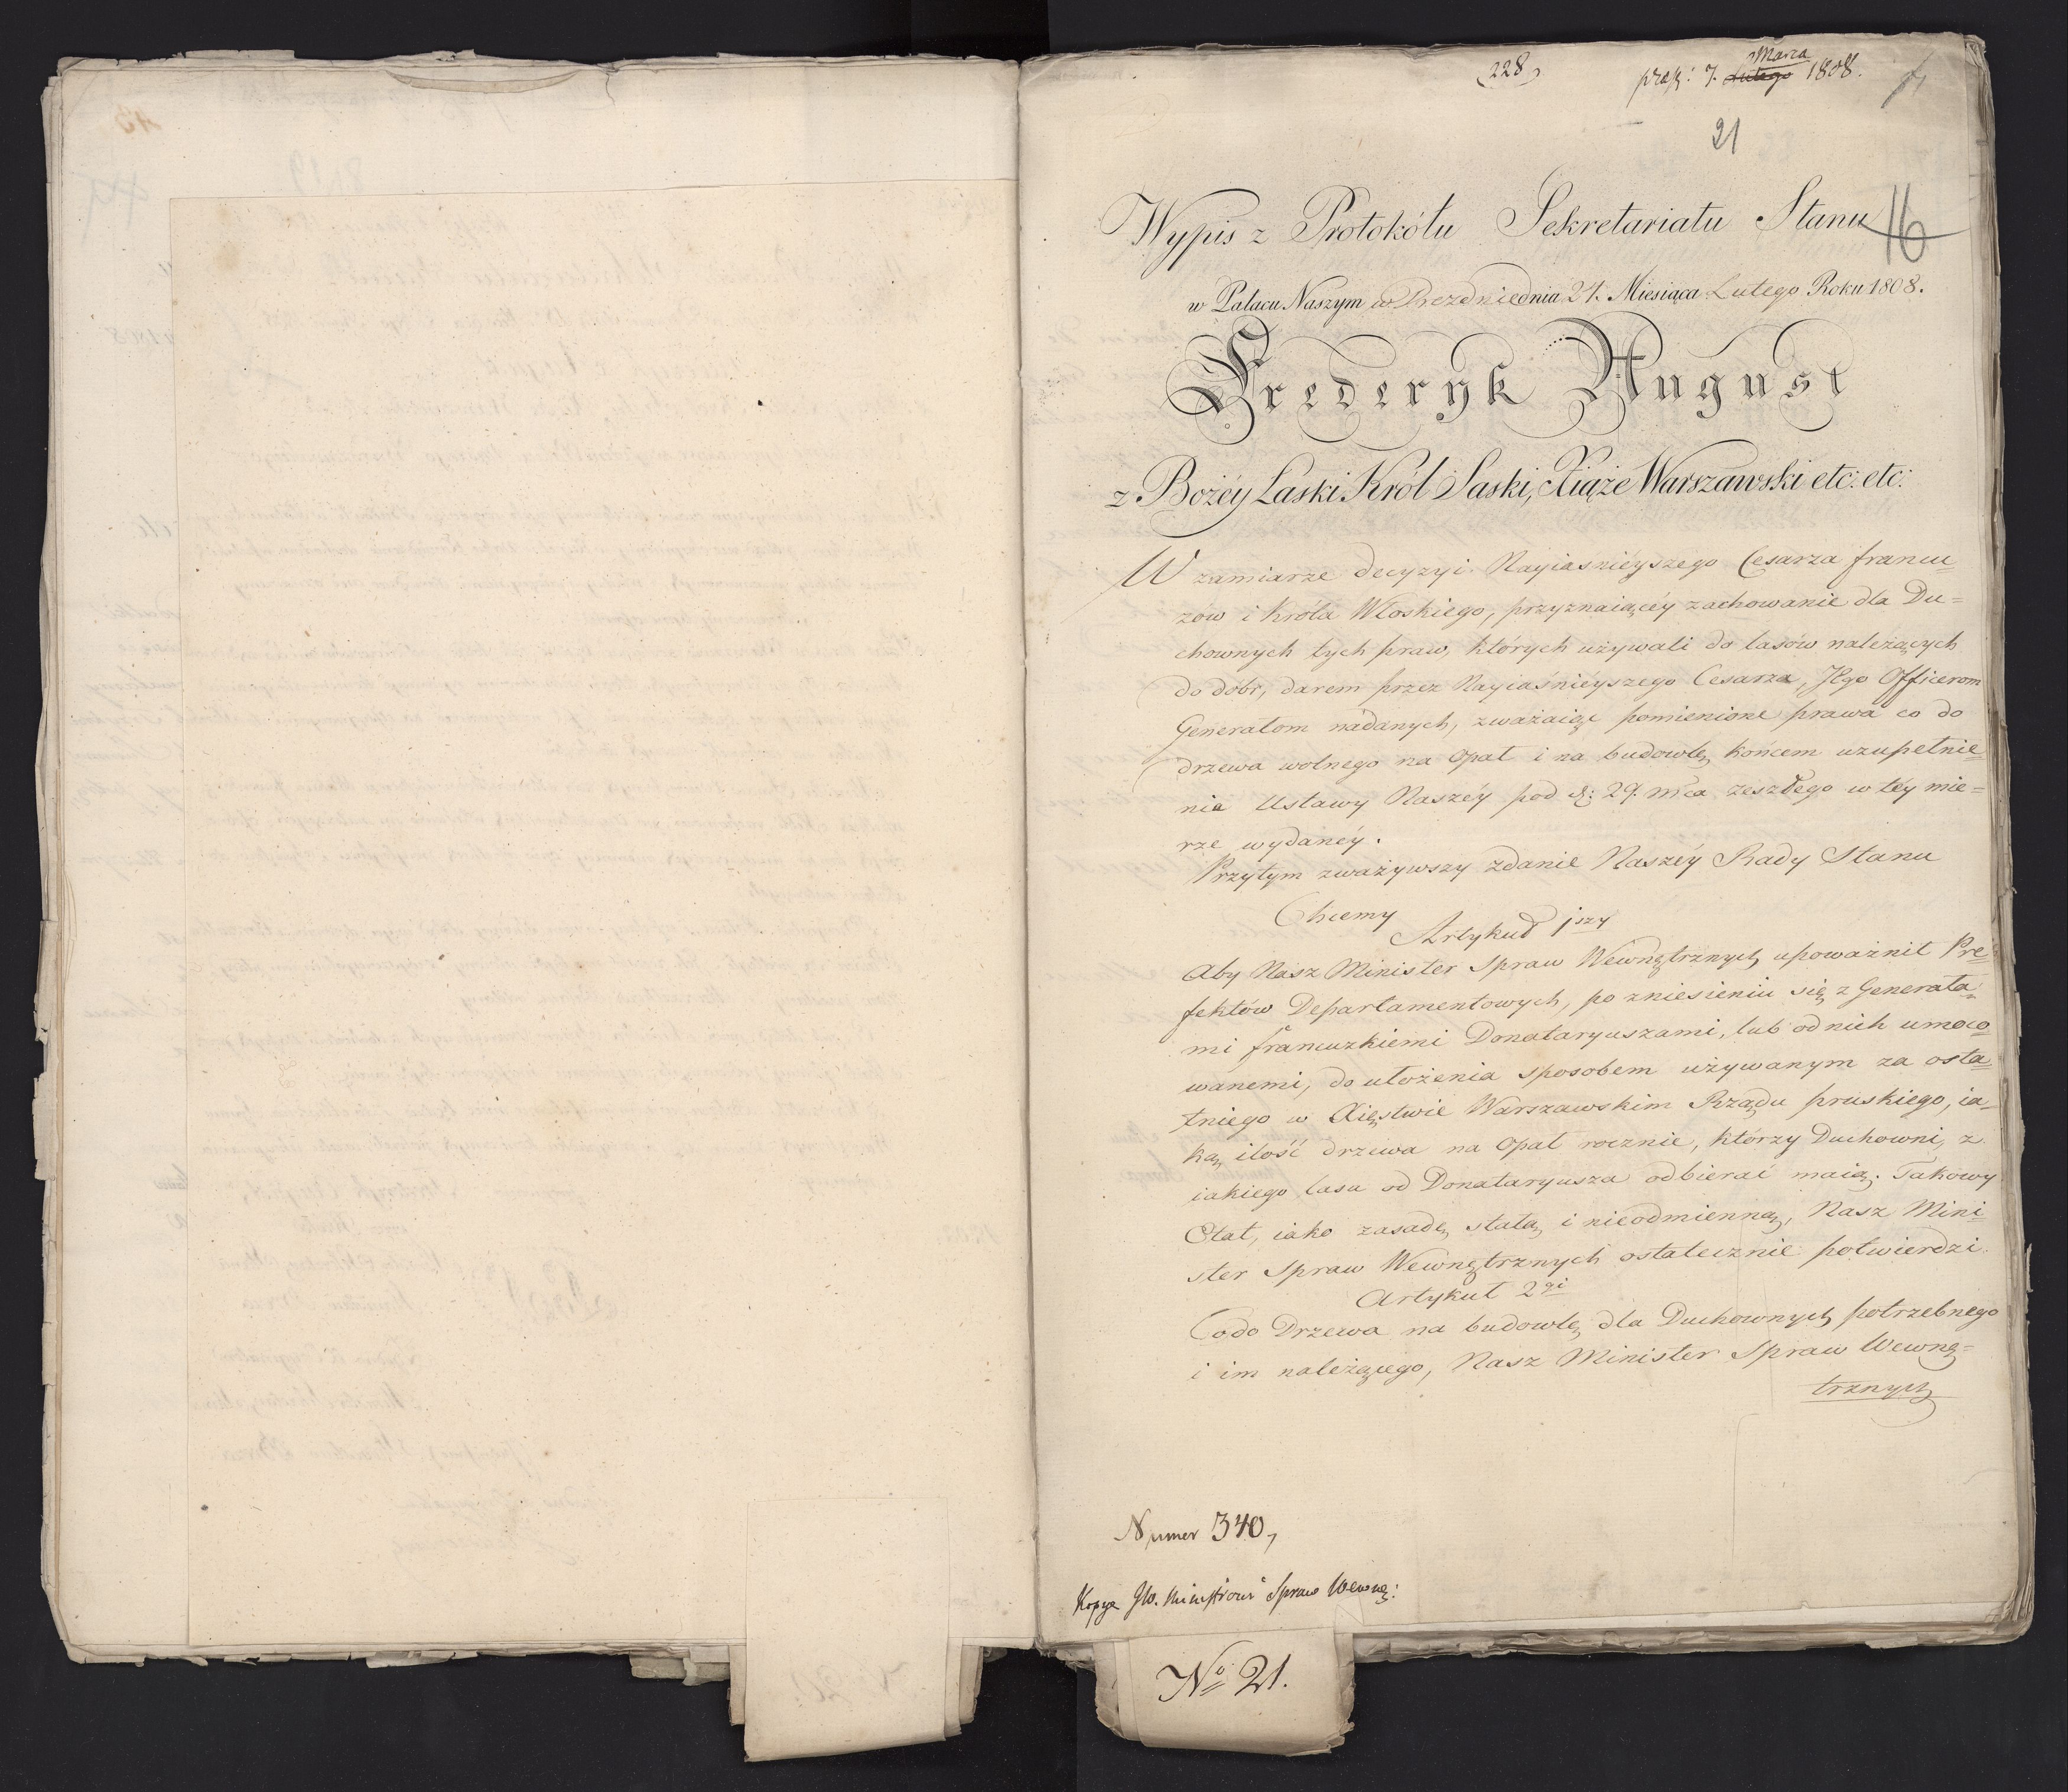 (228)
præs: 7. Marca Lutego 1808.
21
16
Wypis z Protokółu Sekretariatu Stanu
w Pałacu Naszym w Dreznie dnia 24. Miesiąca Lutego Roku 1808.
Frederyk August
z Bożéy Łaski Król Saski, Xiąże Warszawski etc: etc:
W zamiarze decyzyi Nayiasniéyszego Cesarza francu=
zów i Króla Włoskiego, przyznaiącéy zachowanie dla Du=
chownych tych praw, których używali do lasów należących
do dóbr, darem przez Nayiaśniéyszego Cesarza, Jego Officerom
Generałom nadanych, zważaiąc pomienione prawa co do
drzewa wolnego na Opał i na budowlę, końcem uzupełnie=
nia Ustawy Naszéy pod d: 29. mca zeszłego w téy mie=
rze wydanéy.
Przytym zważywszy zdanie Naszéy Rady Stanu
Chcemy
Artykuł 1szy
Aby Nasz Minister Spraw Wewnętrznych upoważnił Pre=
fektów Departamentowych, po zniesieniu się z Generała=
mi francuzkiemi Donataryuszami, lub od nich umoco=
wanemi, do ułożenia sposobem używanym za osta=
tniego w Xięstwie Warszawskim Rządu pruskiego, ia=
ką ilość drzewa na Opał rocznie, którzy Duchowni, z
iakiego lasu od Donataryusza odbierać maią. Takowy
Etat, iako zasadę stałą i nieodmienną, Nasz Mini=
ster Spraw Wewnętrznych ostatecznie potwierdzi.
Artykuł 2gi
Co do Drzewa na budowlę dla Duchownych potrzebnego
i im należącego, Nasz Minister Spraw Wewnę=
trznych
Numer 340,
Kopya JW. Ministrowi Spraw Wewnę:
No 21.